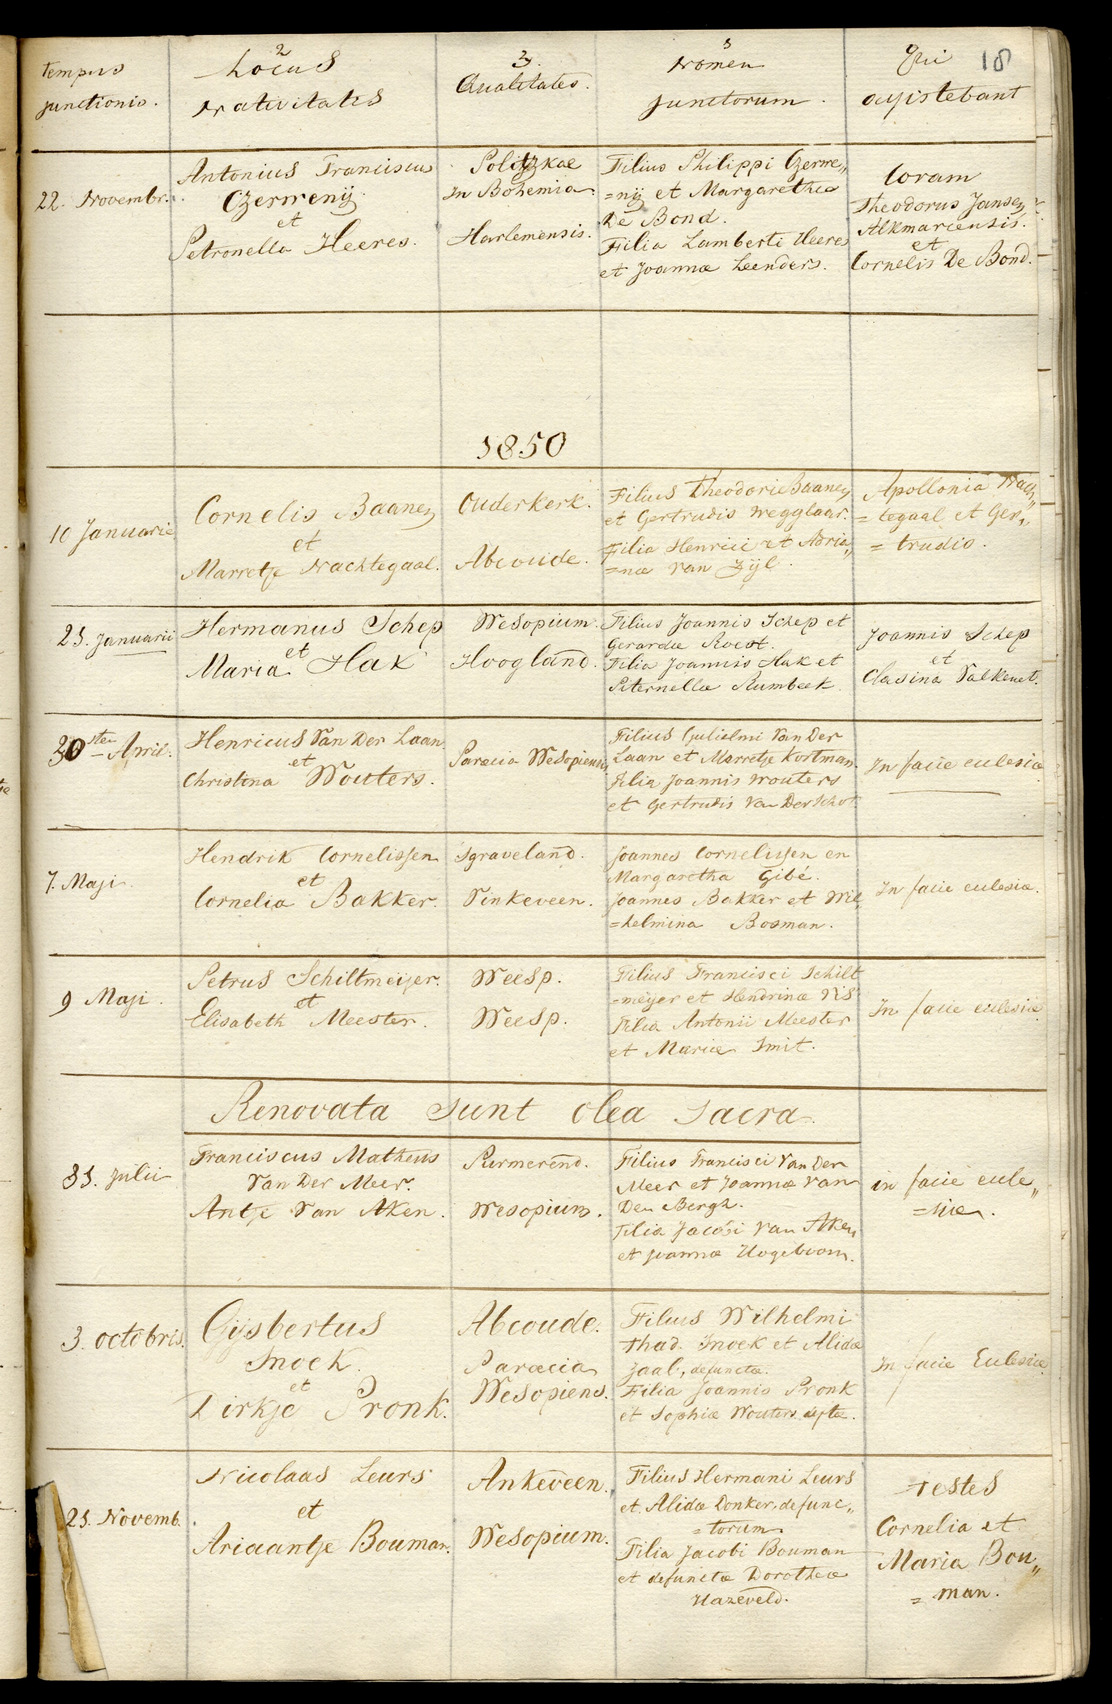 18
tempus junctionis.
2 Locus nativitatis
3. Qualitates.
3 Nomen junctorum.
Qui assistebant
22. Novembr.
Antonius Franciscus
Czermenij
et
Petronella Heeres.
Politzkae
in Bohemia
Harlemensis.
Filius Philippi Czerme„
=nij et Margaretha
De Bond.
Filia Lamberti Heeres
et Joannæ Leenders.
Coram
Theodorus Jansen
Alkmariensis.
et
Cornelis De Bond.
1850
10 Januarie
Cornelis Baanen
et
Marretje Nachtegaal.
Ouderkerk.
Abcoude.
Filius Theodori Baanen
et Gertrudis Wegglaar.
Filia Henrici et Adria„
=næ Van Zijl.
Apollonia Nach„
=tegaal et Ger„
=trudis.
23. Januarii
Hermanus Schep
et
Maria Hak
Wesopium.
Hoogland.
Filius Joannis Schep et
Gerardæ Roest.
Filia Joannis Hak et
Peternellæ Rumbeek
Joannis Schep
et
Clasina Valkenet.
30sten April.
Henricus Van Der Laan
et
Christina Wouters.
Paræcia Wesopiensis
Filius Gulielmi Van Der
Laan et Marretje Kortman.
Filia Joannis Wouters
et Gertrudis Van Der Schot
In facie eclesiæ
7. Maji
Hendrik Cornelissen
et
Cornelia Bakker.
Sgraveland.
Vinkeveen.
Joannes Cornelissen en
Margaretha Gibé.
Joannes Bakker et Wil„
=helmina Bosman.
In facie eclesiæ.
9 Maji.
Petrus Schiltmeijer.
et
Elisabeth Meester.
Weesp.
Weesp.
Filius Francisci Schilt
=meijer et Hendrinæ
Filia Antonii Meester
et Mariæ Smit.
In facie eclesiæ
Renovata sunt olea sacra.
31. Julii
Franciscus Matheus
Van Der Meer.
Antje Van Aken.
Purmerend.
Wesopium.
Filius Francisci Van Der
Meer et Joannæ Van
Den Bergh.
Filia Jacobi Van Aken
et Joannæ Hogeboom.
in facie ecle„
=siæ.
3. octobris.
Gijsbertus
Snoek.
et
Dirkje Pronk.
Abcoude.
Paræcia
Wesopiens.
Filius Wilhelmi
Thad. Snoek et Alidæ
Zaal, defunctæ.
Filia Joannis Pronk
et Sophiæ Wouters deftæ.
In facie Eclesiæ
23. Novemb.
Nicolaas Leurs
et
Ariaantje Bouman.
Ankeveen.
Wesopium.
Filius Hermani Leurs
et Alidæ Donker, defunc„
=torum
Filia Jacobi Bouman
et defunctæ Dorotheæ
Hazeveld.
Testes
Cornelia et
Maria Bou„
=man.